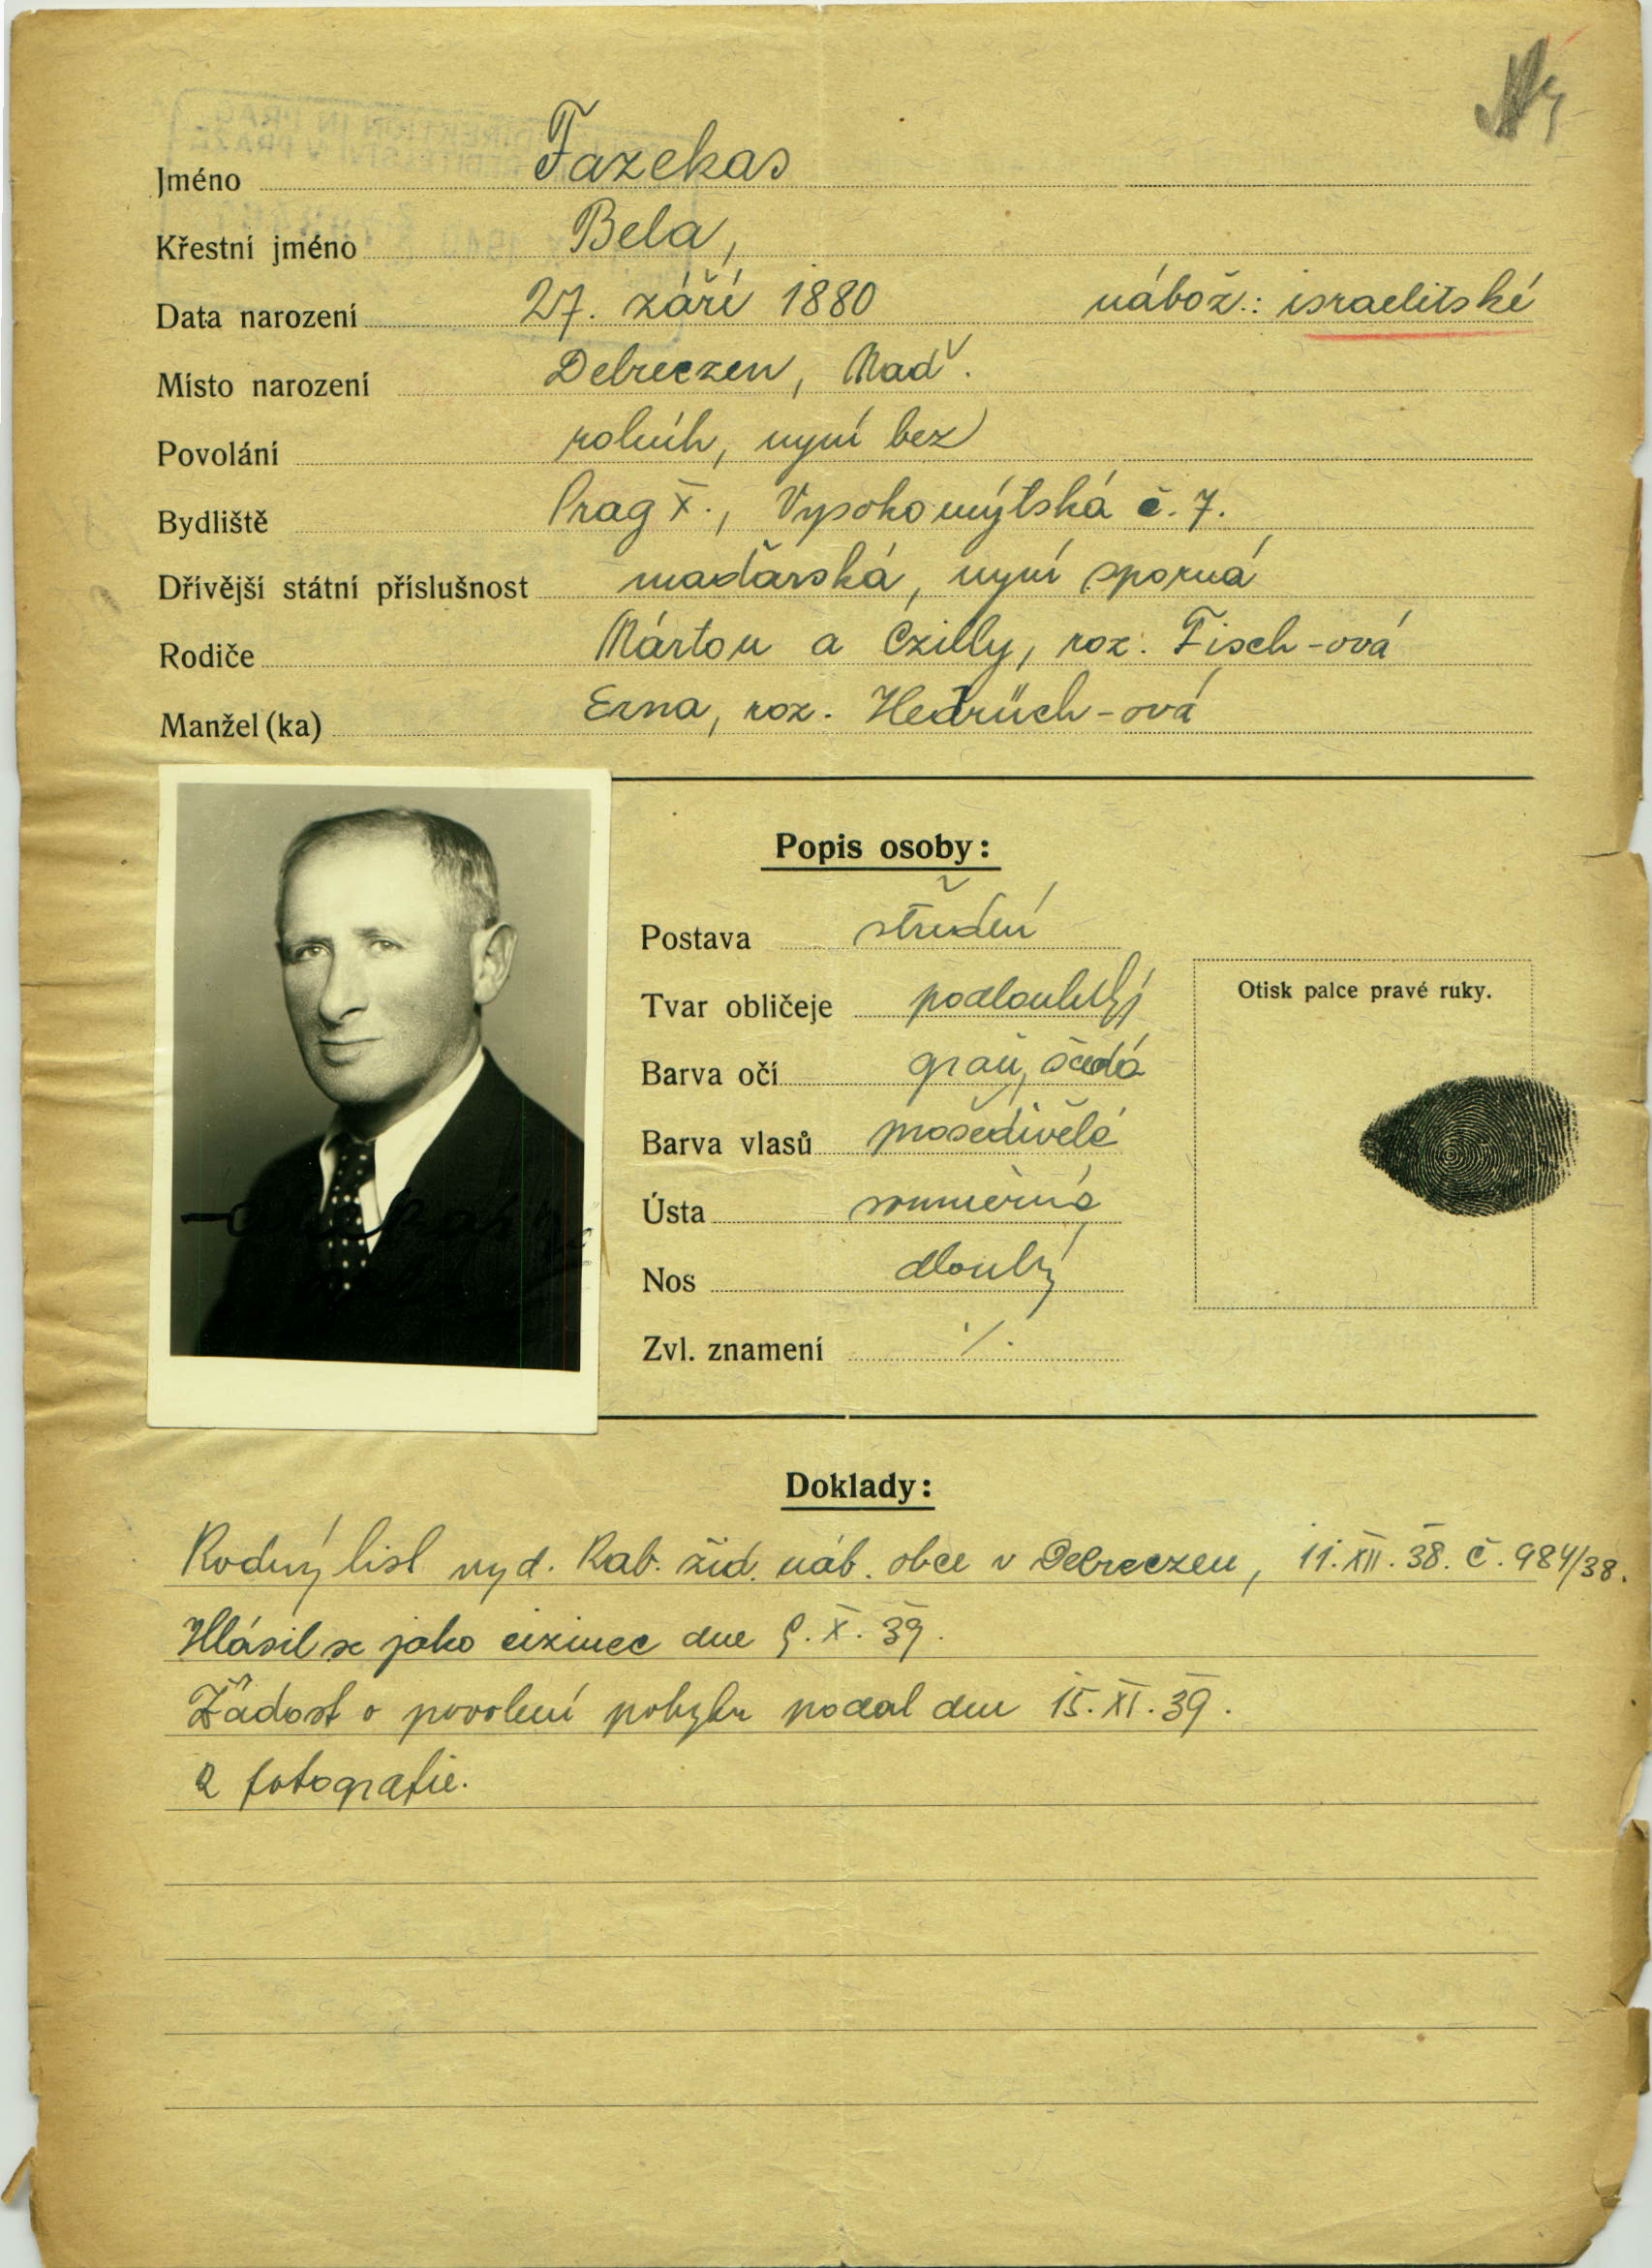 Jméno Fazekas
Křestní jméno Bela,
Data narození 27. září 1880 nábož.: israelitské
Místo narození Debreczen, Maď.
Povolání rolník, nyní bez
Bydliště Prag X., Vysokomýtská č. 7.
Dřívější státní příslušnost maďarská, nyní sporná
Rodiče Márton a Czilly, roz. Fisch-ová
Manžel(ka) Erna, roz.
Popis osoby:
Postava střední
Tvar obličeje podlouhlý
Barva očí grau, šedá
Barva vlasů prošedivělé
Ústa souměrná
Nos dlouhý
Zvl. znamení ·/·
Otisk palce pravé ruky.
Doklady:
Rodný list vyd. Rab. žid. náb. obce v Debreczen, 11. XII. 38. č. 984/38.
Hlásil se jako cizinec dne 9. X. 39.
Žádost o povolení pobytu podal dne 15. XI. 39.
2 fotografie.